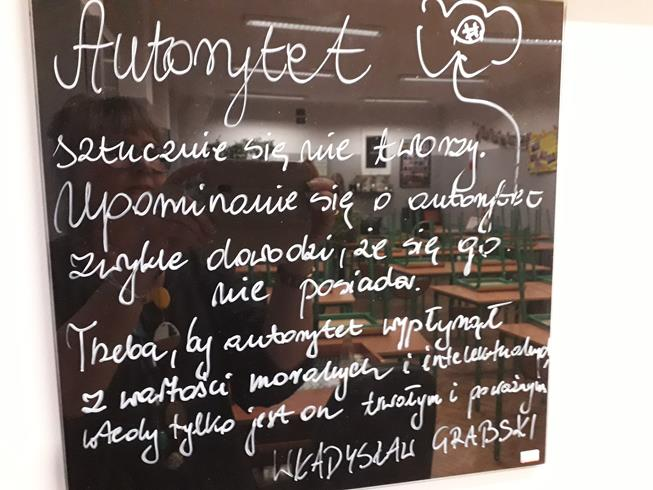 Autorytet
sztucznie się nie tworzy.
Upominanie się o autorytet
zwykle dowodzi, że się go
nie posiada.
Trzeba, by autorytet wypłynął
z wartości moralnych i intelektualnych,
wtedy tylko jest on trwałym i poważnym
WŁADYSŁAW GRABSKI